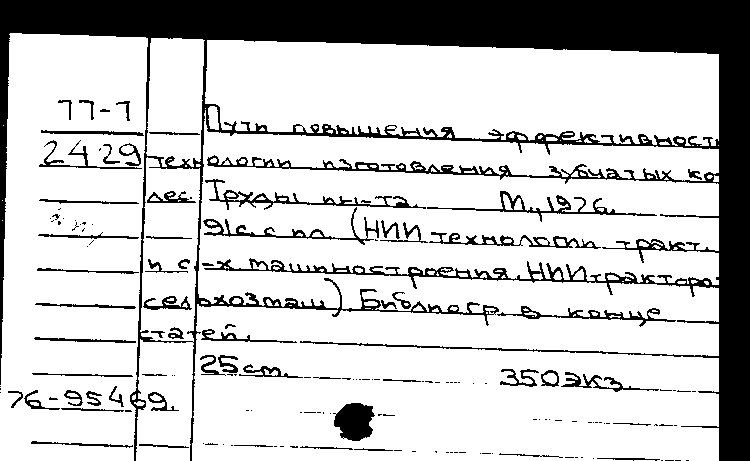 77-7
Пути повышения эффективност
2429 технологии изготовления зубчатых ко
лес. Труды ин-та. М., 1976.
91с. с ил. (НИИ технологии тракт.
и с.-х машиностроения. НИИтракторо
сельхозмаш). Библиогр. в конце
статей.
25см. 350экз.
76-95469.